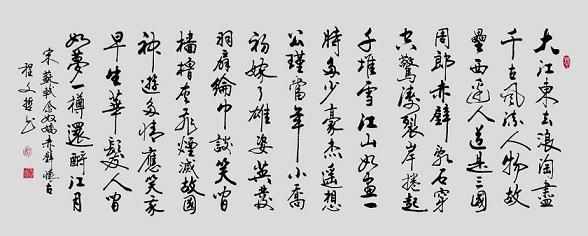 大江東去浪淘盡
千古風流人物故
壘西邊人道是三國
周郎赤壁亂石穿
空驚濤裂岸捲起
千堆雪江山如畫一
時多少豪傑遙想
公瑾當年小喬
初嫁了雄姿英發
羽扇綸巾談笑間
檣櫓灰飛煙滅故國
神遊多情應笑我
早生華髮人間
如夢一樽還酹江月
宋蘇軾念奴嬌赤壁懷古
程文哲